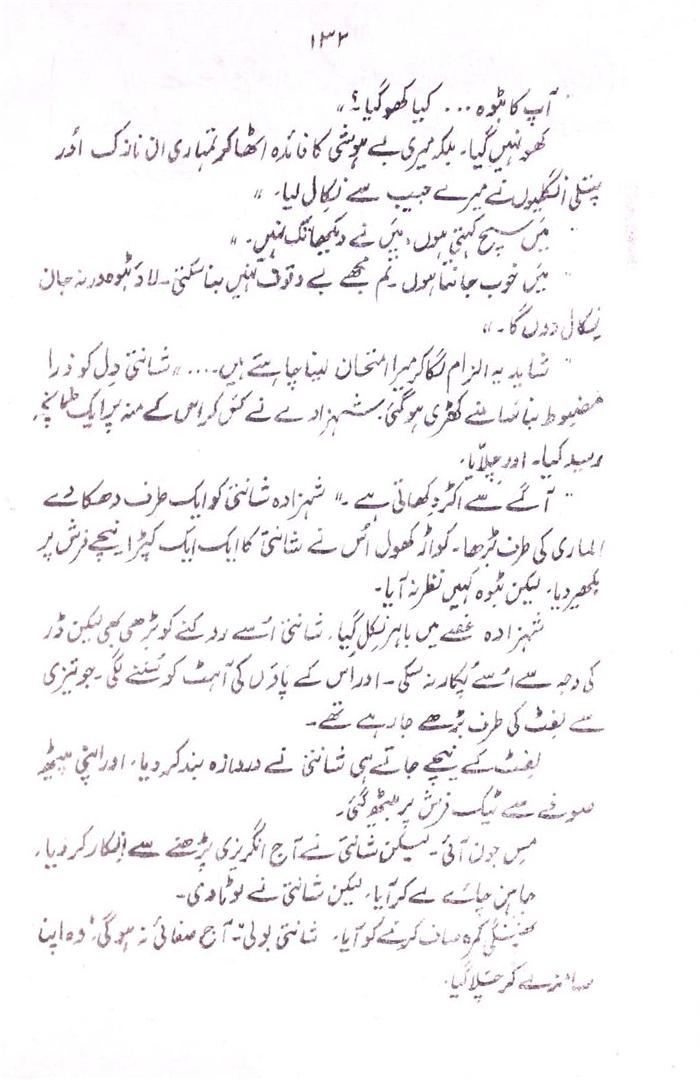 ۱۳۲
" آپ کا بٹوہ ... کیا کھو گیا؟ "
کھو نہیں گیا۔ بلکہ میری بے ہوشی کا فائدہ اٹھا کر تمہاری ان نازک اور
پتلی انگلیوں نے میرے جیب سے نکال لیا۔ "
" میں سچ کہتی ہوں، میں نے دیکھا تک نہیں۔ "
" میں خوب جانتا ہوں۔ تم مجھے بے وقوف نہیں بنا سکتی۔ لاؤ بٹوہ ورنہ جان
نکال دوں گا۔ "
" شاید یہ الزام لگا کر میرا امتحان لینا چاہتے ہیں.... " شانتی دل کو ذرا
مضبوط بنا سامنے کھڑی ہو گئی۔ شہزادے نے کس کر اس کے منہ پر ایک طمانچہ
رسید کیا۔ اور چلّایا۔
" آگے سے اکڑ دکھاتی ہے۔ " شہزادہ شانتی کو ایک طرف دھکا دے
الماری کی طرف بڑھا۔ کواڑ کھول اُس نے شانتی کا ایک ایک کپڑا نیچے فرش پر
بکھیر دیا۔ لیکن بٹوہ کہیں نظر نہ آیا۔
شہزادہ غصے میں باہر نکل گیا۔ شانتی اُسے روکنے کو بڑھی بھی لیکن ڈر
کی وجہ سے اُسے پُکار نہ سکی۔ اور اُس کے پاؤں کی آہٹ کو سُننے لگی۔ جو تیزی
سے لفٹ کی طرف بڑھے جا رہے تھے۔
لفٹ کے نیچے جاتے ہی شانتی نے دروازہ بند کر دیا۔ اور اپنی پیٹھ
صوفے سے ٹیک فرش پر بیٹھ گئی۔
مس جون آئی۔ لیکن شانتی نے آج انگریزی پڑھنے سے انکار کر دیا۔
چائے لے کر آیا۔ لیکن شانتی نے لوٹا دی۔
بھنگی کمرہ صاف کرنے کو آیا۔ شانتی بولی۔ آج صفائی نہ ہو گی۔ وہ اپنا
لے کر چلا گیا۔